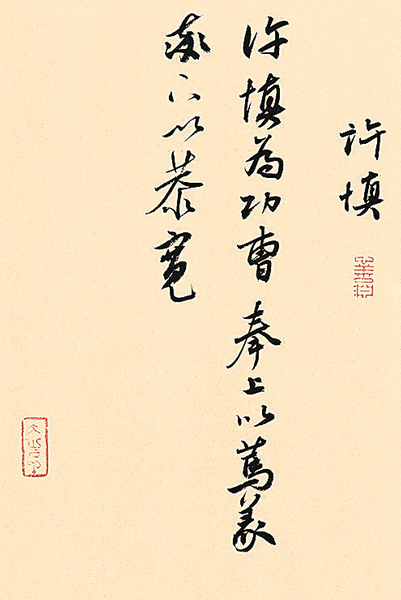 許慎
許慎為功曹奉上以篤義
率下以恭寬